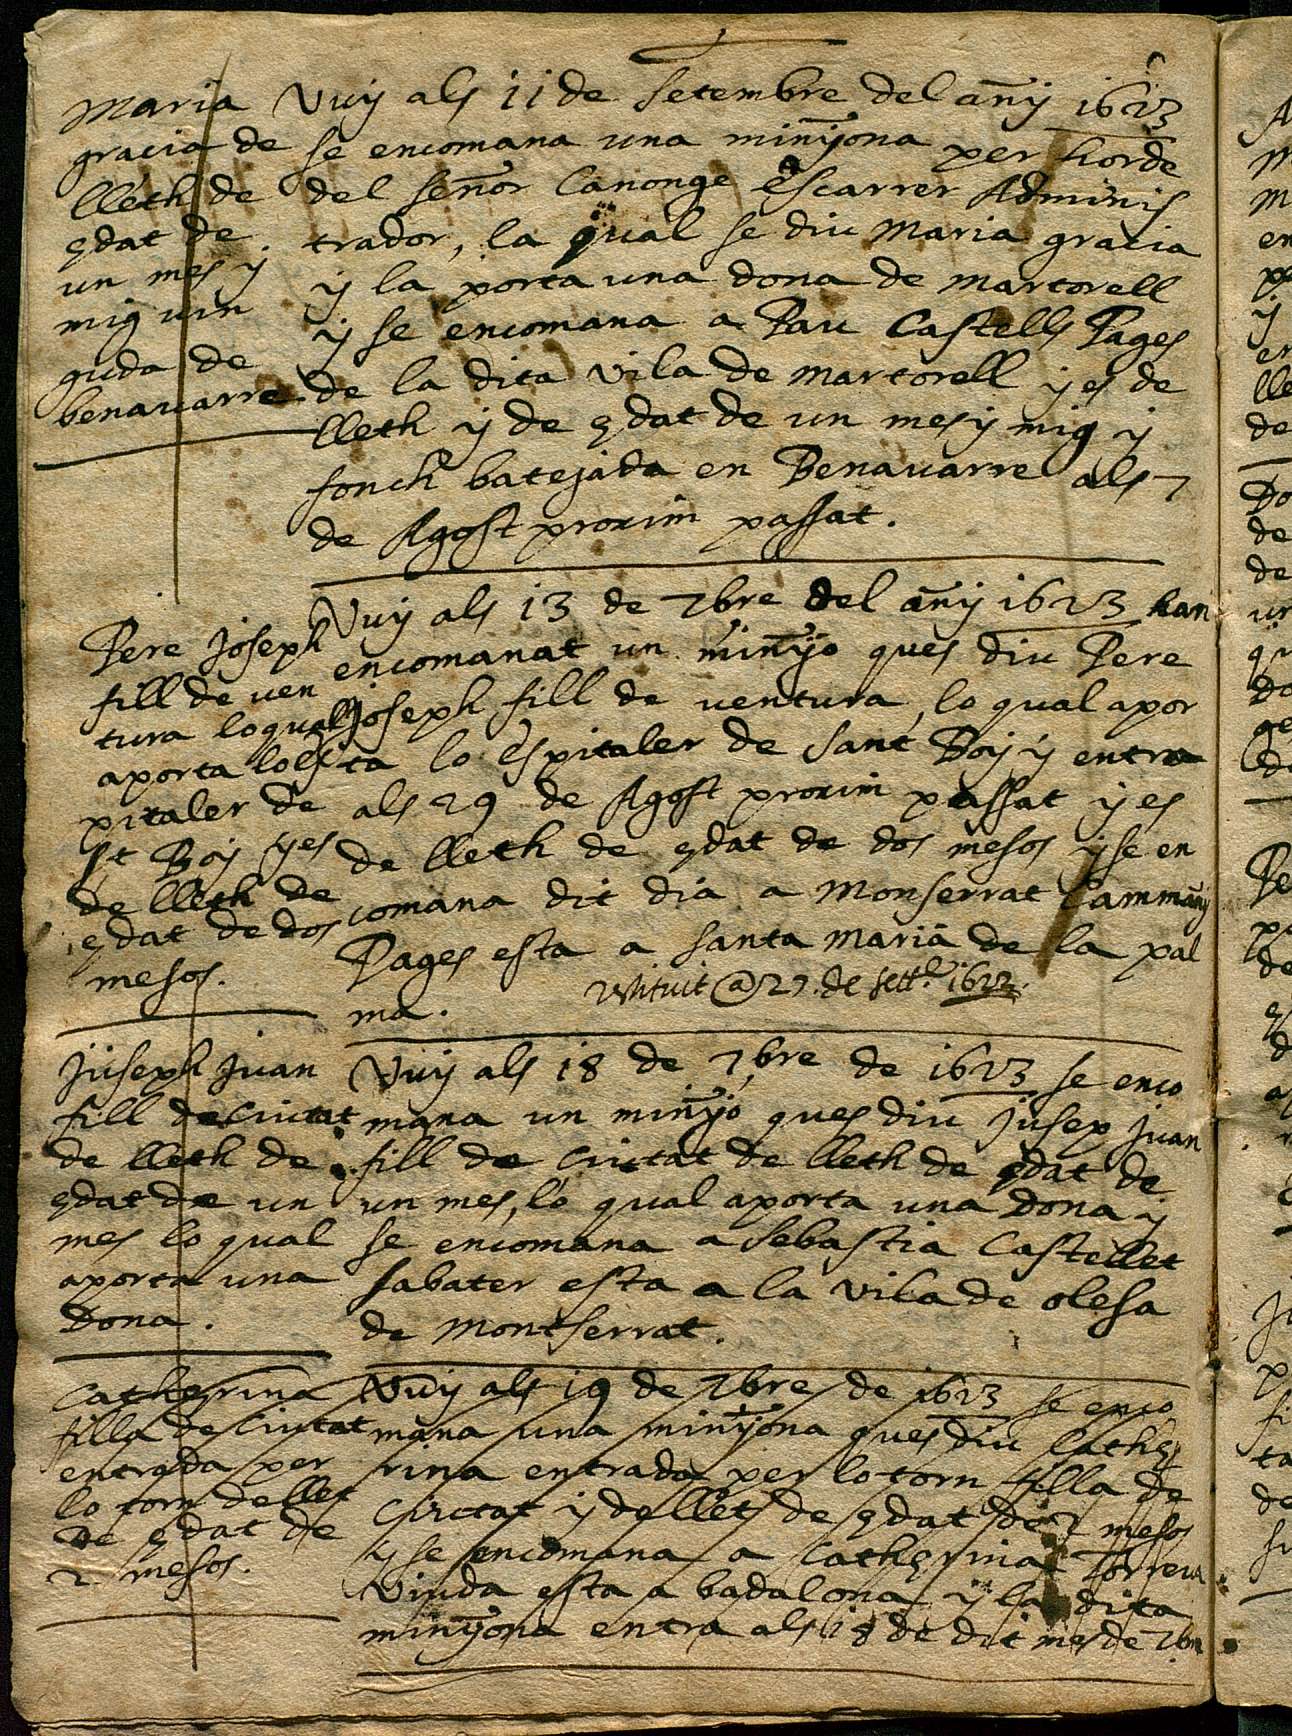 Maria
gracia de
lleth de
edat de
un mes y
mig vin
guda de
benavarre
Vuy als 11 de setembre del añy 1623
se encomana una minyona per horde
del señor Canonge Escarrer Adminis
trador, la qual se diu Maria gracia
y la porta una dona de Martorell
y se encomana a Pau Castells Pages
de la dita Vila de Martorell y es de
lleth y de edat de un mes y mig y
fonch batejada en Benavarre als 7
de Agost proxim passat.
Pere Joseph
fill de ven
tura lo qual
aporta lo es
pitaler de
st Boy y es
de lleth de
edat de dos
mesos.
Vuy als 13 de 7bre del añy 1623 han
encomanat un minyo ques diu Pere
Joseph fill de ventura, lo qual apor
ta lo Espitaler de Sant Boy y entra
als 29 de Agost proxim passat y es
de lleth de edat de dos mesos y se en
comana dit dia a Monserrat Cammañy
Pages esta a Santa Maria de la pal
ma.
restituit @ 27. de sett.e 1623.
Juseph Juan
fill de Ciutat
de lleth de
edat de un
mes lo qual
aporta una
Dona.
Vuy als 18 de 7bre de 1623 se enco
mana un minyo ques diu Jusep Juan
fill de Ciutat de lleth de edat de
un mes, lo qual aporta una Dona y
se encomana a Sebastia Castellet
sabater esta a la Vila de olesa
de Montserrat.
Catherina
filla de Ciutat
entrada per
lo torn de llet
De edat de
2 mesos.
Vuy als 19 de 7bre de 1623 se enco
mana una minyona ques diu Cathe
rina entrada per lo torn filla de
Ciutat y de llet de edat de 2 mesos
y se encomana a Catherina Torrena
Viuda esta a badalona y la dita
minyona entra als 18 de dit mes de 7bre